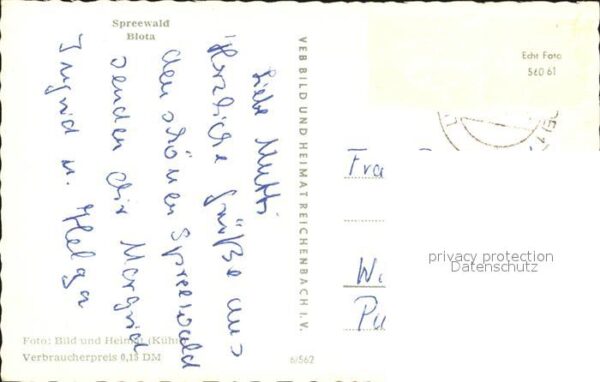 Spreewald
Blota
Liebe Mutti
Herzliche Grüße aus
dem schönen Spreewald
senden dir Margrid
Ingrid u. Helga
Foto: Bild und Heimat (Kühn
Verbraucherpreis 0,15 DM
VEB BILD UND HEIMAT REICHENBACH I. V.
6/562
Echt Foto
S60 61
Fra
W
Pu
privacy protection
Datenschutz